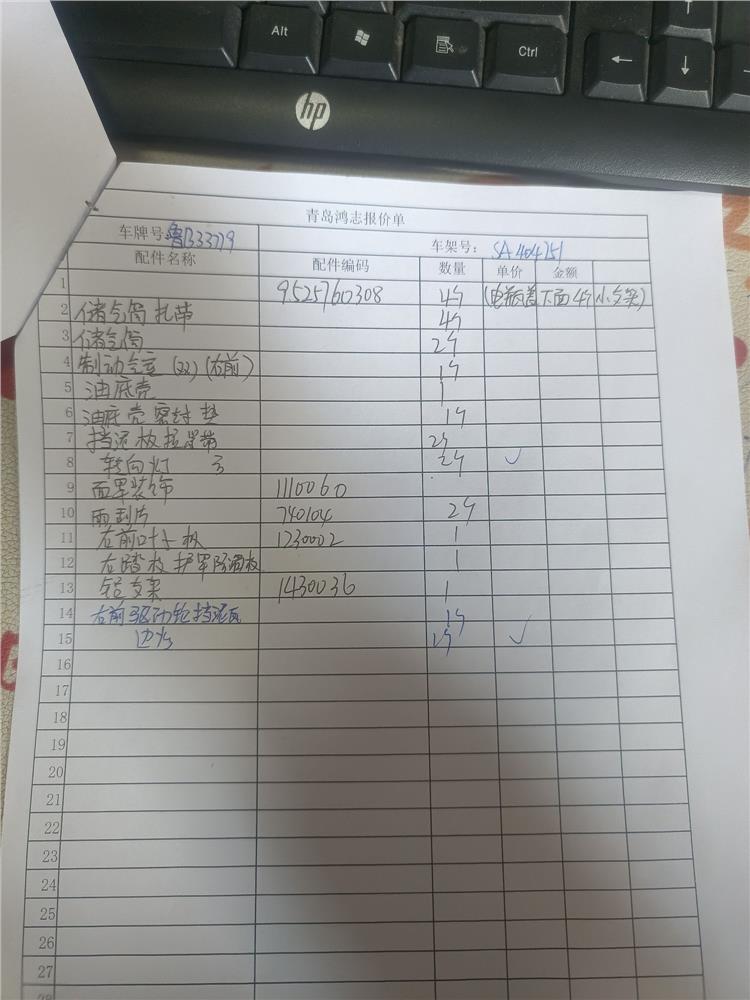 Alt
Ctrl
hp
青岛鸿志报价单
车牌号:鲁B33779 车架号: SA404251
配件名称 配件编码 数量 单价 金额
1 9525760308 4个 (电瓶盖下面4个小支架)
2 储气筒扎带 4个
3 储气筒 2个
4 制动气室 (双) (右前) 1个
5 油底壳 1
6 油底壳密封垫 1个
7 挡泥板拉带 2个
8 转向灯 2个 ✓
9 面罩装饰 1110060
10 雨刮片 740104 2个
11 右前叶子板 1230002 1
12 左踏板护罩 1
13 支架 1430036 1
14 右前驱动轮挡泥瓦 1个
15 边灯 2个 ✓
16
17
18
19
20
21
22
23
24
25
26
27
28